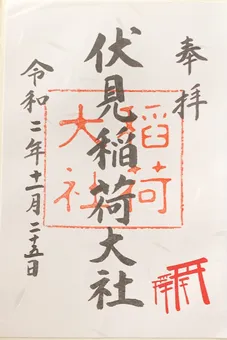 奉拝
伏見稲荷大社
稲荷大社
令和二年十一月二十五日